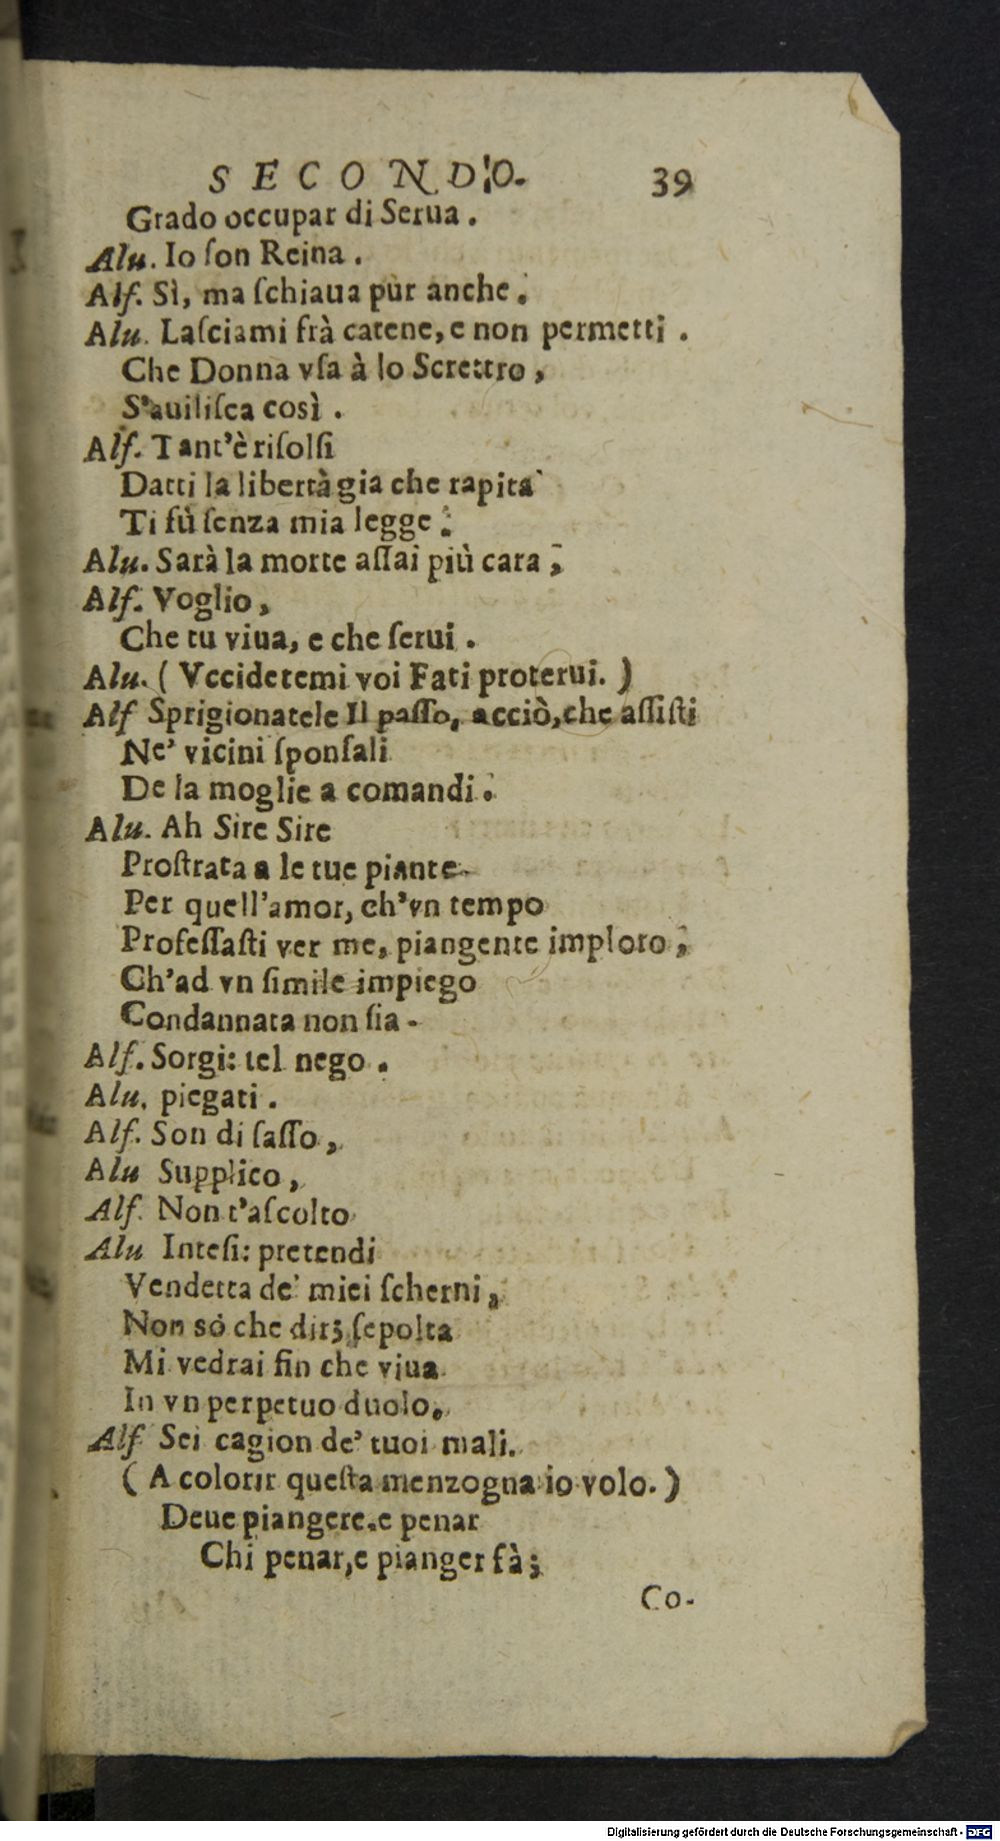 SECONDO. 39
Grado occupar di Serua.
Alu. Io ſon Reina.
Alf. Sì, ma ſchiaua pur anche.
Alu. Laſciami frà catene, e non permetti.
Che Donna vſa à lo Screttro,
S'auiliſca così.
Alf. Tant'è riſolſi
Darti la libertà gia che rapita
Ti fù ſenza mia legge.
Alu. Sarà la morte aſſai più cara;
Alf. Voglio,
Che tu viua, e che ſerui.
Alu. (Vccidetemi voi Fati proterui.)
Alf Sprigionatele Il paſſo, acciò, che aſſiſti
Ne' vicini ſponſali
De la moglie a comandi.
Alu. Ah Sire Sire
Proſtrata a le tue piante
Per quell'amor, ch'vn tempo
Profeſſaſti ver me, piangente imploro;
Ch'ad vn ſimile impiego
Condannata non ſia.
Alf. Sorgi: tel nego.
Alu. piegati.
Alf. Son di ſaſſo,
Alu Supplico,
Alf. Non t'aſcolto
Alu Inteſi: pretendi
Vendetta de' miei ſcherni,
Non sò che dir; ſepolta
Mi vedrai fin che viua
In vn perpetuo duolo.
Alf Sei cagion de' tuoi mali.
(A colorir queſta menzogna io volo.)
Deue piangere, e penar
Chi penar, e pianger fà;
Co-
Digitalisierung gefördert durch die Deutsche Forschungsgemeinschaft - DFG